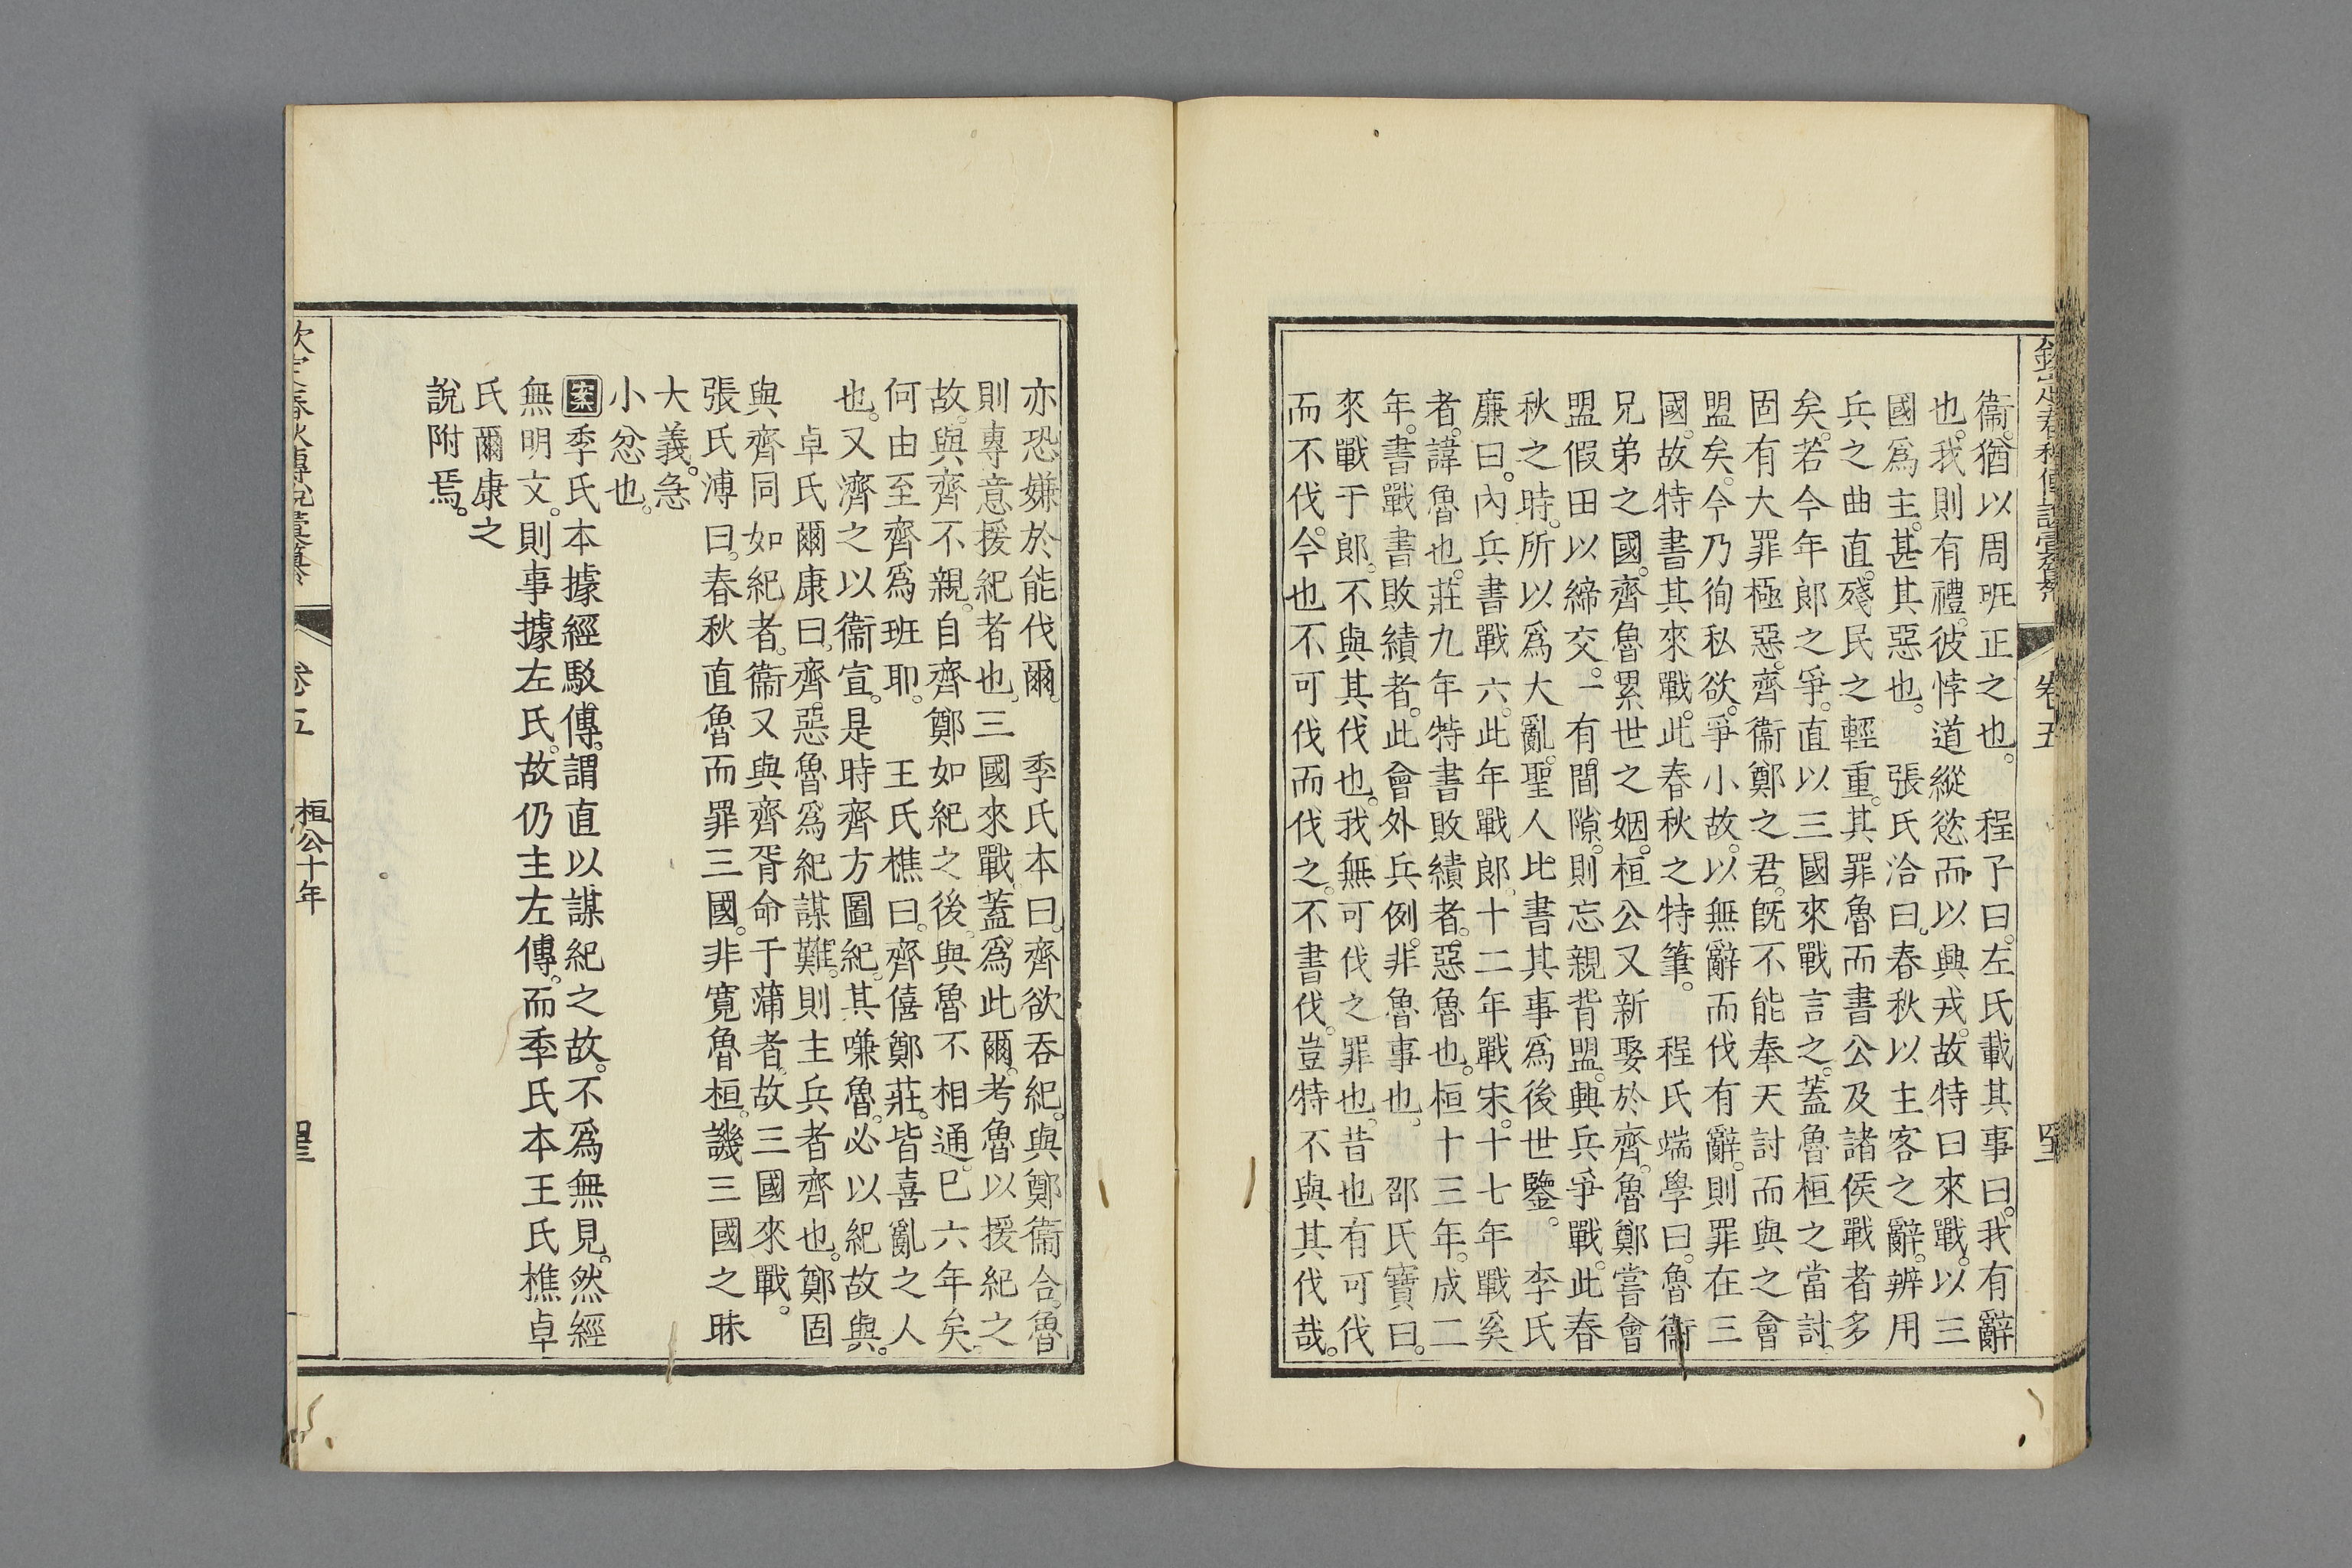 欽定春秋傳說彙纂 卷五
衞。猶以周班正之也。 程子曰。左氏載其事曰。我有辭
也。我則有禮。彼悖道縱慾而以興戎。故特曰來戰。以三
國爲主。甚其惡也。 張氏洽曰。春秋以主客之辭。辨用
兵之曲直。殘民之輕重。其罪魯而書公及諸侯戰者多
矣。若今年郎之爭。直以三國來戰言之。蓋魯桓之當討。
固有大罪極惡。齊衞鄭之君。旣不能奉天討而與之會
盟矣。今乃徇私欲。爭小故。以無辭而伐有辭。則罪在三
國。故特書其來戰。此春秋之特筆。 程氏端學曰。魯衞
兄弟之國。齊魯累世之姻。桓公又新娶於齊。魯鄭嘗會
盟假田以締交。一有間隙。則忘親背盟。興兵爭戰。此春
秋之時。所以爲大亂。聖人比書其事爲後世鑒。 李氏
廉曰。內兵書戰六。此年戰郎。十二年戰宋。十七年戰奚
者。諱魯也。莊九年特書敗績者。惡魯也。桓十三年。成二
年。書戰書敗績者。此會外兵例。非魯事也。 邵氏寶曰。
來戰于郎。不與其伐也。我無可伐之罪也。昔也有可伐
而不伐。今也不可伐而伐之。不書伐。豈特不與其伐哉。
亦恐嫌於能伐爾。 季氏本曰。齊欲吞紀。與鄭衞合。魯
則專意援紀者也。三國來戰。蓋爲此爾。考魯以援紀之
故。與齊不親。自齊鄭如紀之後。與魯不相通。已六年矣。
何由至齊爲班耶。 王氏樵曰。齊僖鄭莊。皆喜亂之人
也。又濟之以衞宣。是時齊方圖紀。其嗛魯。必以紀故與。
 卓氏爾康曰。齊惡魯爲紀謀難。則主兵者齊也。鄭固
與齊同如紀者。衞又與齊胥命于蒲者。故三國來戰。
張氏溥曰。春秋直魯而罪三國。非寬魯桓。譏三國之昧
大義。急
小忿也。
案季氏本據經駁傳。謂直以謀紀之故。不爲無見。然經
無明文。則事據左氏。故仍主左傳。而季氏本王氏樵卓
氏爾康之
說附焉。
欽定春秋傳說彙纂 卷五 桓公十年